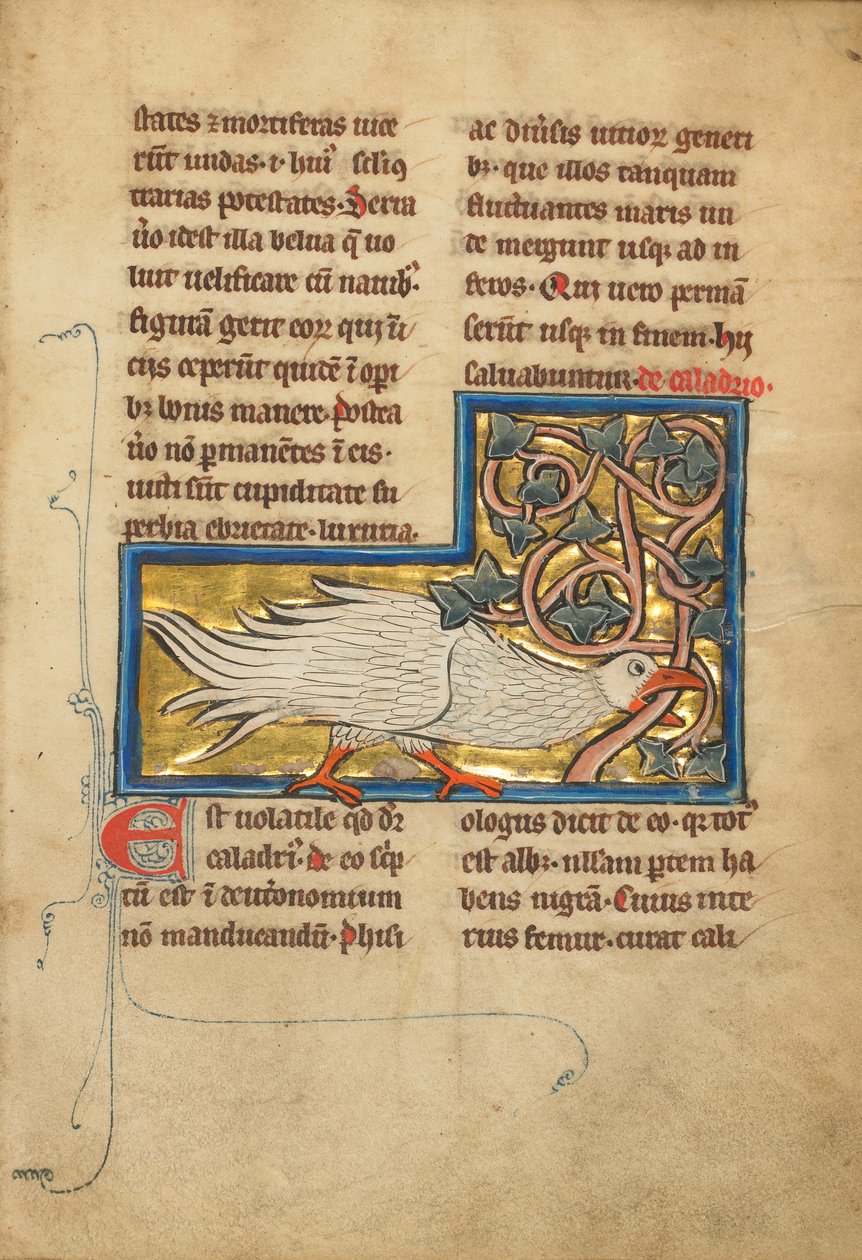 states ⁊ mortiferas uice
rūt undas· i· huiꝰ sclīꝯ
trarias potestates· Serra
ůo idest illa belua q̄ uo
luit uelificare cū nauibꝫ·
figurā gerit eoꝝ qui īi
ciis ceperūt quidē ī opi
bꝫ bonis manere· postea
ůo nō ꝑmanētes ī eis·
uicti sūt cupiditate su
perbia ebrietate· luxuria·
ac diůsis uitioꝝ generi
bꝫ· que illos tanquam
fluctuantes maris un
de mergunt usqꝫ ad in
feros· Qui uero permā
serūt usqꝫ in finem· hii
saluabuntur· de caladrio·
Est uolatile qd dr̄
caladriꝰ· de eo sc̄p
tū est ī deut̾onomium
nō manducandū· Phisi
ologus dicit de eo· qr totꝰ
est albꝫ· ullam ꝑtem ha
bens nigrā· Cuius inte
rius femur· curat cali